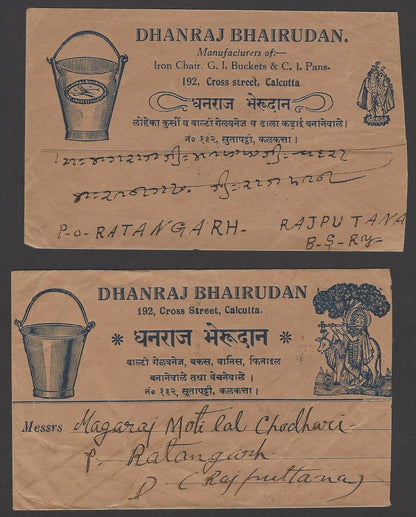 DHANRAJ BHAIRUDAN.
Manufacturers of:—
Iron Chair. G. I. Buckets & C. I. Pans.
192, Cross street, Calcutta.
धनराज भेरूदान
लोहेका कुर्सी व बाल्टी गेलवनेज व ढाला कड़ाई बनानेवाले।
नं० १९२, सुतापट्टी, कलकत्ता।
P.O- RATANGARH- RAJPUTANA
B-S-Rly
DHANRAJ BHAIRUDAN
192, Cross Street, Calcutta.
* धनराज भेरूदान *
बाल्टी गेलवनेज, बकस, वार्निस, फिनाइल
बनानेवाले तथा बेचनेवाले।
नं० १९२, सुतापट्टी, कलकत्ता।
Messrs Magaraj Motilal Chodhari-
P. Ratangarh
D (Rajputtana)